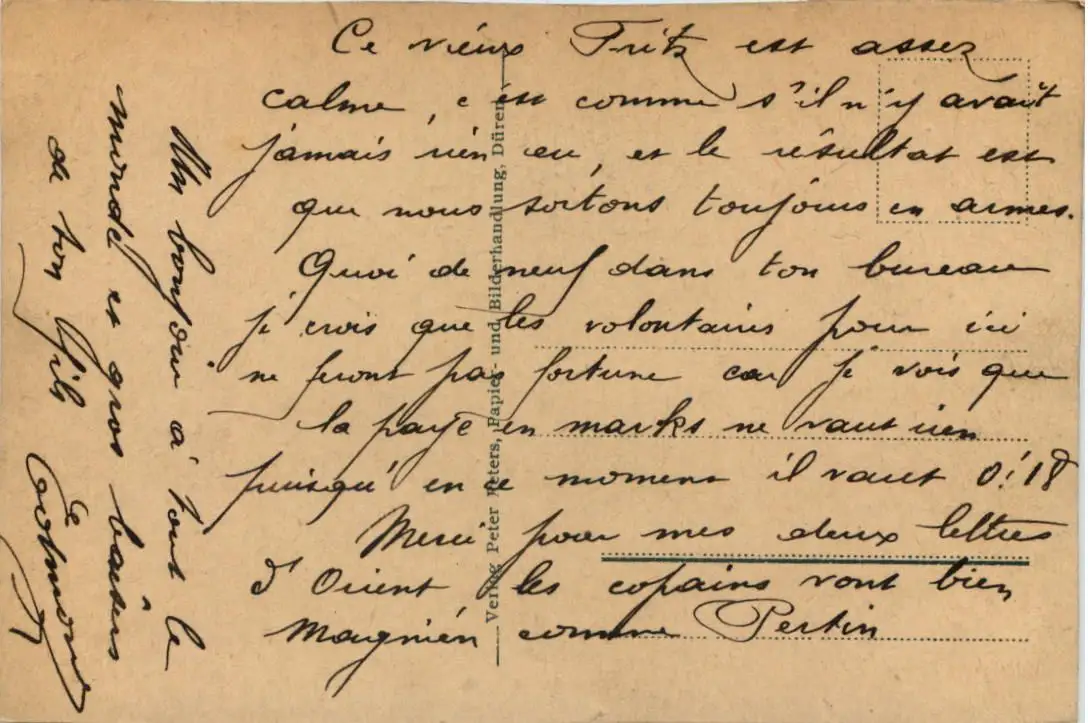 Ce vieux Fritz est assez
calme, c'est comme s'il n'y avait
jamais rien eu, et le résultat est
que nous sortons toujours en armes.
Quoi de neuf dans ton bureau
je crois que les volontaires pour ici
ne feront pas fortune car je vois que
la paye en marks ne vaut rien
puisqu'en ce moment il vaut 0!18
Merci pour mes deux lettres
d'Orient les copains vont bien
Magnien comme Pertin
Un bonjour à tout le
monde et gros baisers
de ton fils
Edmond
Verlag Peter Peters, Papier- und Bilderhandlung, Düren